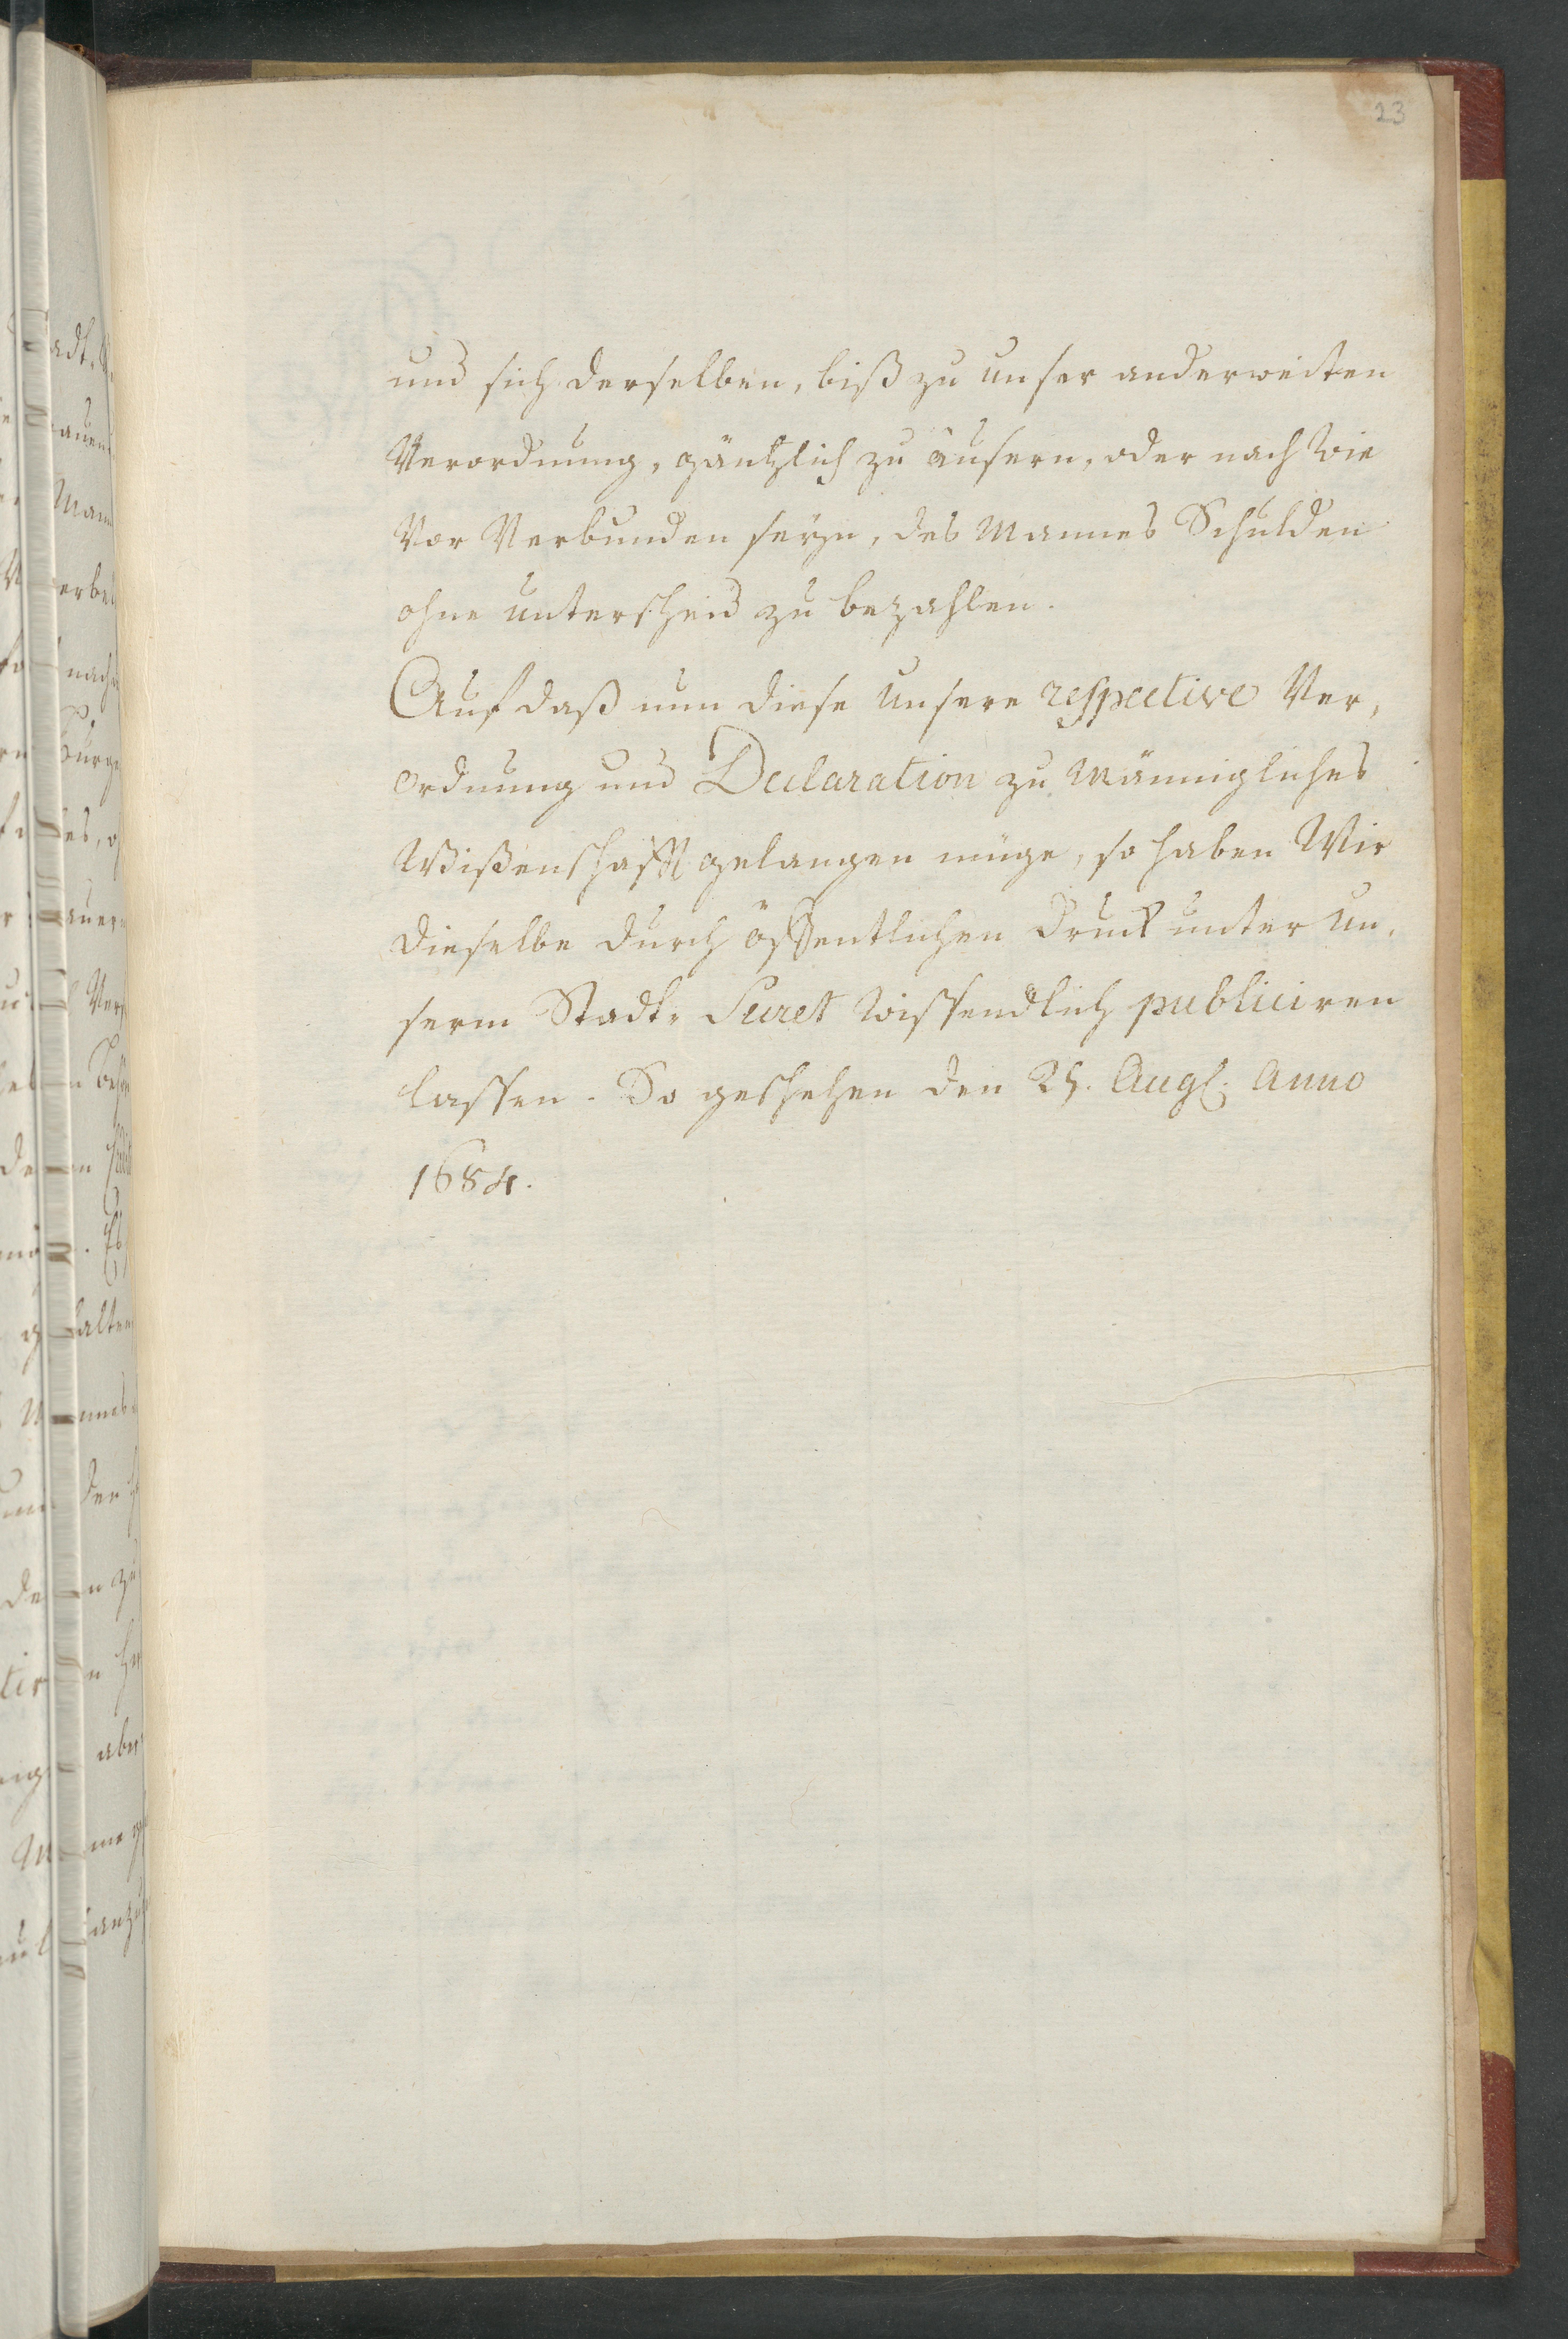 23
und sich derselben, biß zu unser anderweiten
Verordnung, gäntzlich zu äusern, oder nach wie
vor verbunden seyn, des Mannes Schulden
ohne unterscheid zu bezahlen.
Auf daß nun diese unsere respective Ver,
ordnung und Declaration zu Männigliches
Wißenschafft gelangen müge, so haben Wir
dieselbe durch öffentlichen Druck unter un,
serm Stadt- Secret wissendlich publiciren
lassen. So geschehen den 25. Augs. Anno
1684.